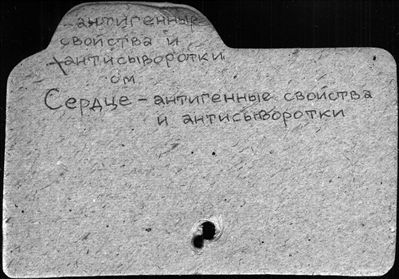 - антигенные
свойства и
антисыворотки
см.
Сердце - антигенные свойства
и антисыворотки